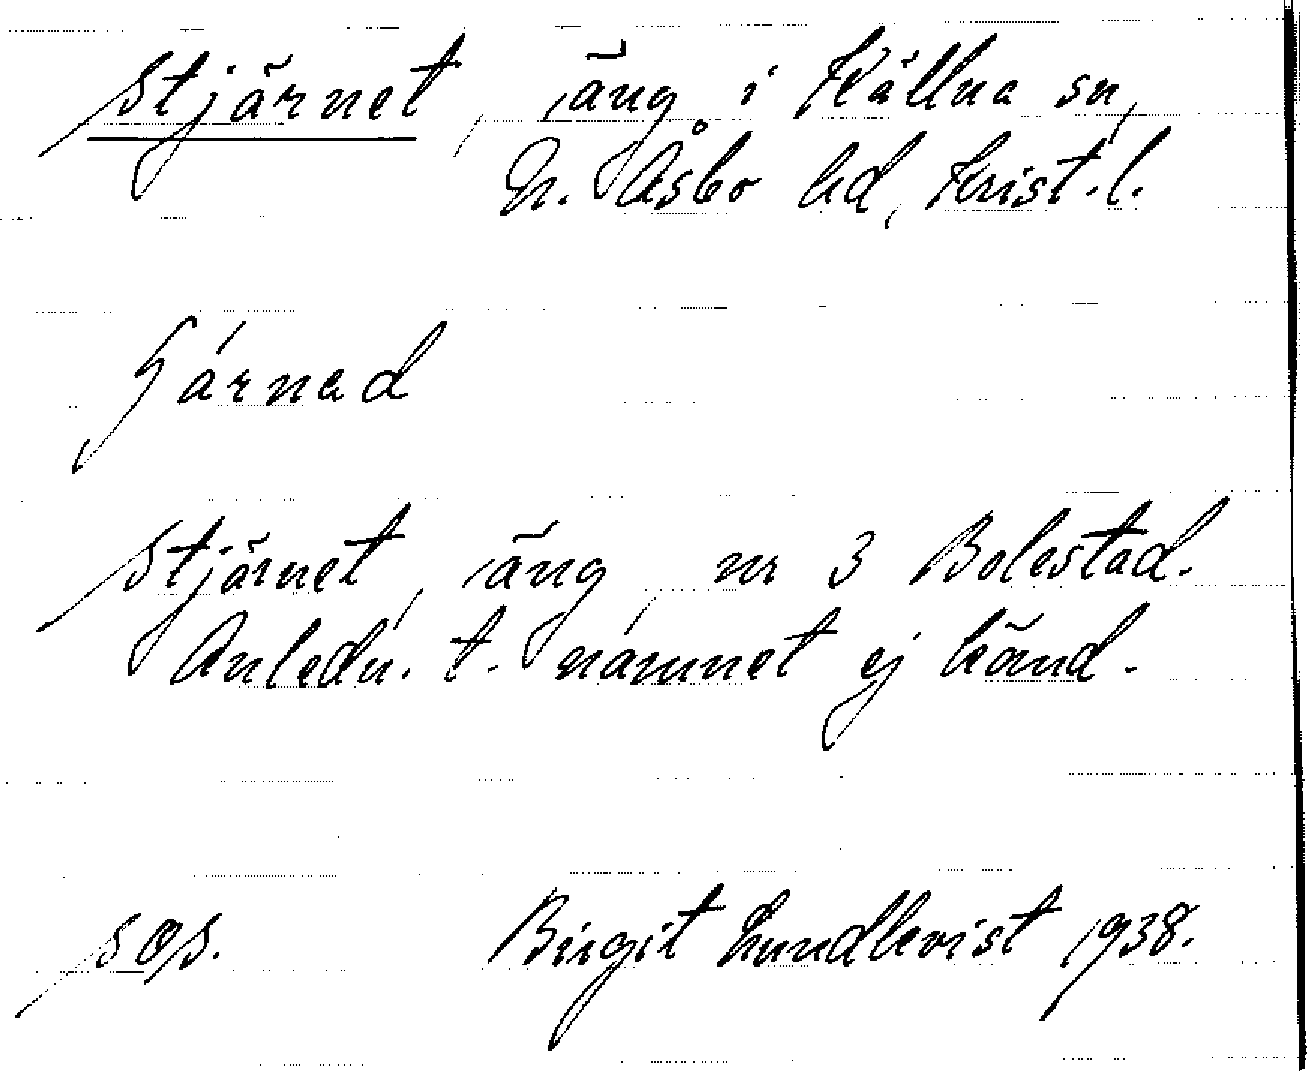 Stjärnet, äng i Källna sn,
N. Åsbo hd, Krist. l.
Stjärnet, äng, nr 3 Bolestad.
Anledn. t. namnet ej känd.
Birgit Lundkvist 1938.